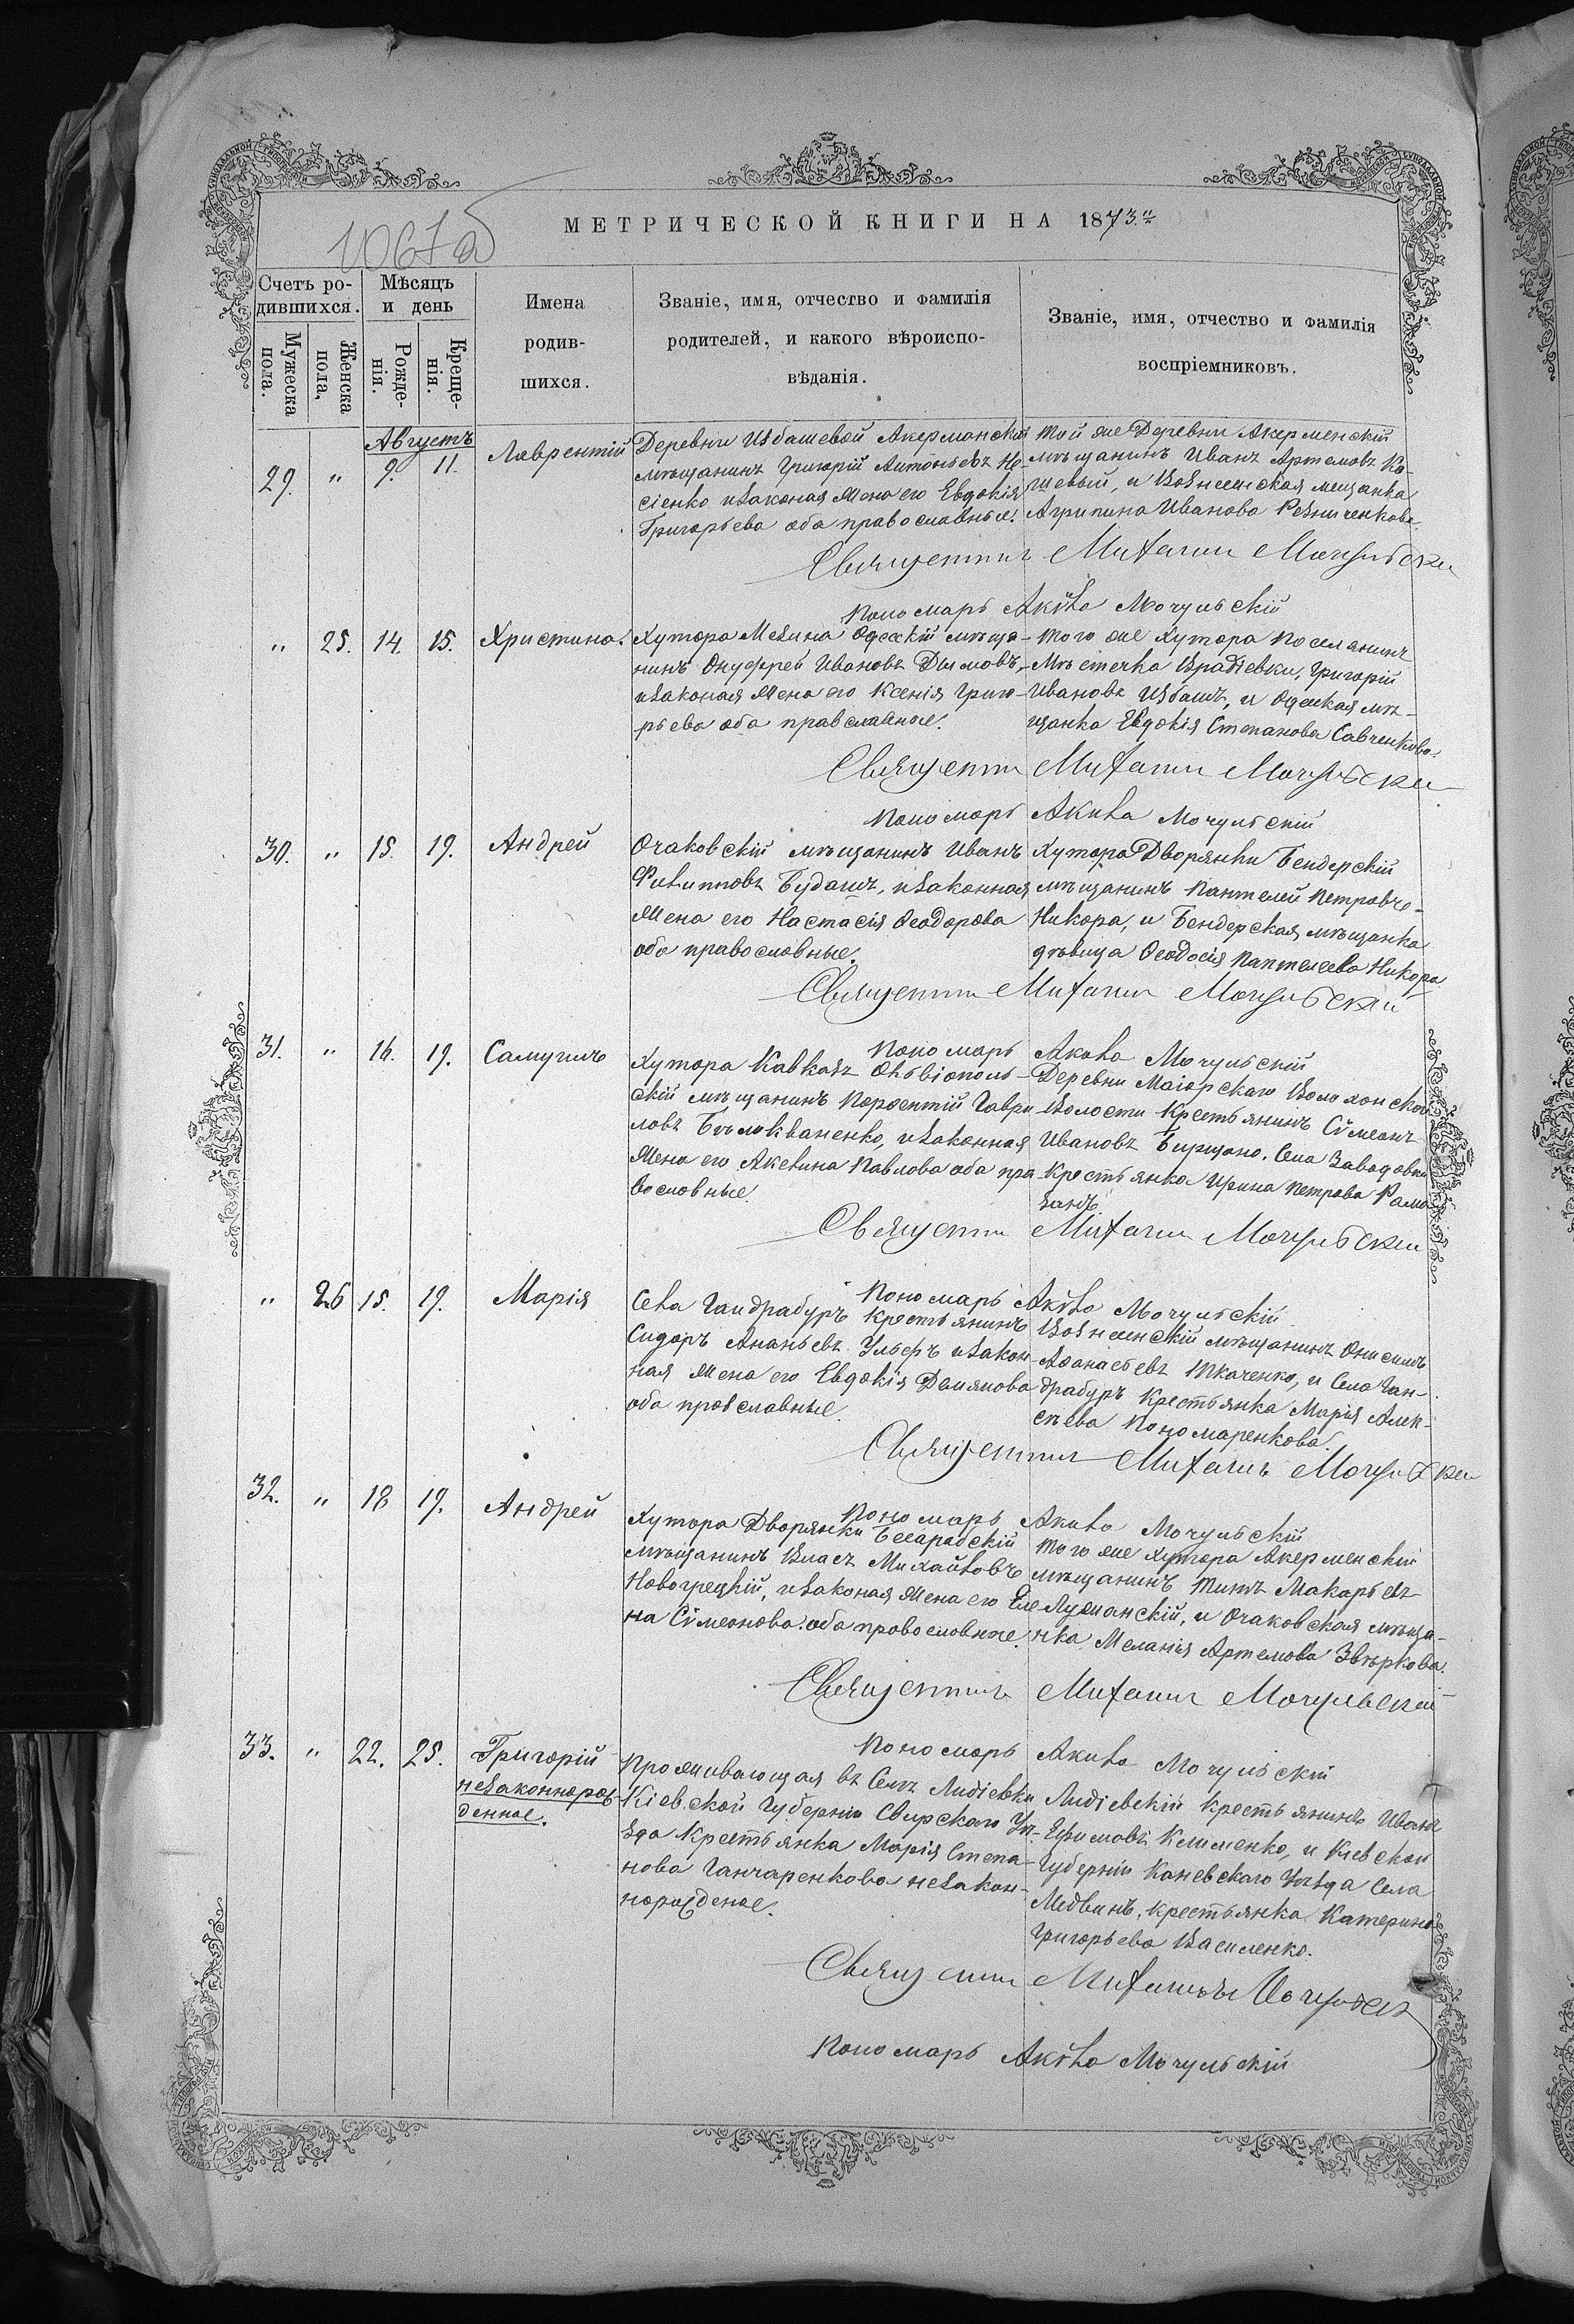 МЕТРИЧЕСКОЙ КНИГИ НА 1873.й
1067 об
Счетъ ро-
дившихся.
Мужеска
пола.
Женска
пола,
Мѣсяцъ
и день
Рожде-
нія.
Креще-
нія.
Имена
родив-
шихся.
Званіе, имя, отчество и фамилія
родителей, и какого вѣроиспо-
вѣданія.
Званіе, имя, отчество и фамилія
воспріемниковъ.
Августъ
29. " 9. 11. Лаврентій
Деревни Избашевой Акерманскій
мѣщанинъ Григорій Антоньевъ Не-
сіенко изаконая жена его Евдокія
Григорьева оба православные.
Той же Деревни Акерменскій
мѣщанинъ Иванъ Артемовъ Ко-
шевый, и Вознесенская мещанка
Агрипина Иванова Резниченкова.
Священникъ Михаилъ Мочульскій
Пономарь Акила Мочульскій
" 25. 14. 15. Христина.
Хутора Мезина Одесскій мѣща-
нинъ Онуфрей Ивановъ Дымовъ,
изаконая жена его Ксенія Григо-
рьева оба православные.
Того же хутора поселянинъ
Мѣстечка Врадіевки, Григорій
Ивановъ Избашъ, и Одесская мѣ-
щанка Евдокія Степанова Савченкова.
Священникъ Михаилъ Мочульскій
Пономарь Акила Мочульскій
30. " 15. 19. Андрей
Очаковскій мѣщанинъ Иванъ
Филипповъ Будашъ, изаконная
жена его Настасія Ѳеодорова
оба православные.
Хутора Дворянки Бендерскій
мѣщанинъ Пантелей Петровъ
Никора, и Бендерская мѣщанка
дѣвица Ѳеодосія Пантелеева Никора
Священникъ Михаилъ Мочульскій
Пономарь Акила Мочульскій
31. " 16. 19. Самуилъ
Хутора Кавказъ Ольвіополь-
скій мѣщанинъ Порфентій Гаври-
ловъ Бѣлокваненко, изаконная
жена его Акелина Павлова оба пра-
вословные.
Деревни Маіорскаго
Волости крестьянинъ Сѵмеонъ
Ивановъ Бирщано. Села Заводовки
Крестьянка Ирина Петрова Рама-
занъ
Священникъ Михаилъ Мочульскій
Пономарь Акила Мочульскій
" 26 15. 19. Марія
Села Гандрабуръ крестьянинъ
Сидоръ Ананьевъ Ульфъ изакон-
ная жена его Евдокія Демянова
оба православные.
Вознесенскій мѣщанинъ Онисимъ
Аѳанасьевъ Ткаченко, и Села Ган-
драбуръ Крестьянка Марія Алек-
сѣева Пономаренкова.
Священникъ Михаилъ Мочульскій
Пономарь Акила Мочульскій
32. " 18 19. Андрей
Хутора Дворянки Бесарабскій
мѣщанинъ Власъ Михайловъ
Новогрецкій, изаконая жена его Еле-
на Сѵмеонова. оба провословные.
Того же хутора Акерменскій
мѣщанинъ Титъ Макарьевъ
Лузманскій, и Очаковская мѣща-
нка Меланія Артемова Звѣркова.
Священникъ Михаилъ Мочульскій
Пономарь Акила Мочульскій
33. " 22. 25. Григорій
незаконнорож-
денное.
Проживающая въ Селѣ Лидіевки
Кіевской Губерніи Свирскаго Уѣ-
зда Крестьянка Марія Степа-
нова Ганчаренкова незакон-
норожденое.
Лидіевскій крестьянинъ Иванъ
Ефимовъ Клименко, и Кіевской
Губерніи Каневскаго Уѣзда Села
Медвинъ, крестьянка Катерина
Григорьева Василенко.
Священникъ Михаилъ Мочульскій
Пономарь Акила Мочульскій